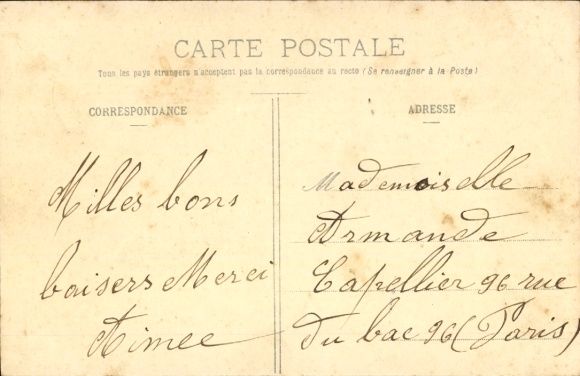 CARTE POSTALE
Tous les pays étrangers n'acceptent pas la correspondance au recto (Se renseigner à la Poste)
CORRESPONDANCE
Milles bons
baisers Merci
Aimee
ADRESSE
Mademoiselle
Armande
Capellier 96 rue
du bac 96 (Paris)